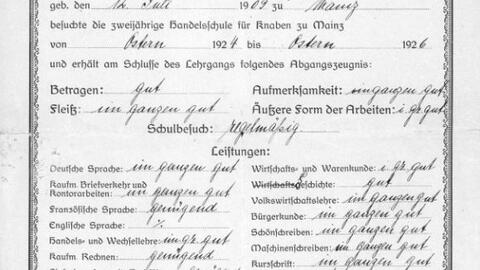 geb. den 12. Juli 1909 zu Mainz
besuchte die zweijährige Handelsschule für Knaben zu Mainz
von Ostern 1924 bis Ostern 1926
und erhält am Schlusse des Lehrgangs folgendes Abgangszeugnis:
Betragen: gut Aufmerksamkeit: im ganzen gut
Fleiß: im ganzen gut Äußere Form der Arbeiten: i. gz. gut
Schulbesuch: regelmäßig
Leistungen:
Deutsche Sprache: im ganzen gut
Kaufm. Briefverkehr und
Kontorarbeiten: im ganzen gut
Französische Sprache: genügend
Englische Sprache: %
Handels- und Wechsellehre: im gz. gut
Kaufm. Rechnen: genügend
Wirtschafts- und Warenkunde: i. gz. gut
Wirtschafts Geschichte: gut
Volkswirtschaftslehre: im ganzen gut
Bürgerkunde: im ganzen gut
Schönschreiben: im ganzen gut
Maschinenschreiben: im ganzen gut
Kurzschrift: im ganzen gut